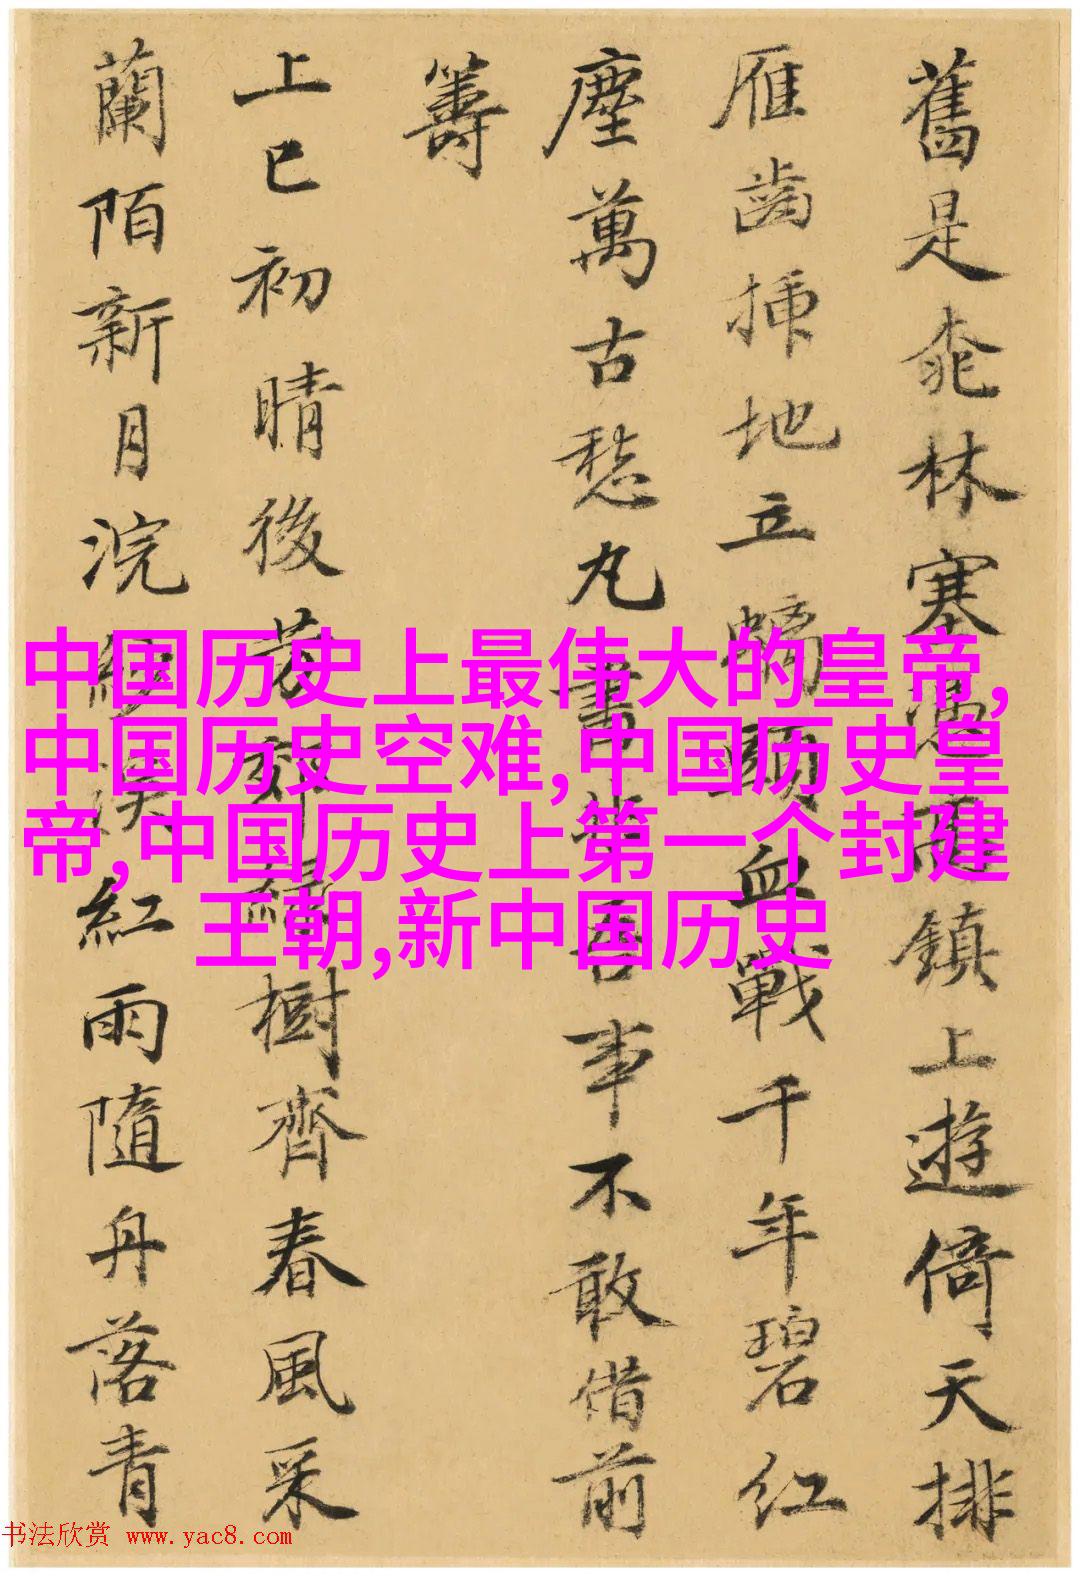 舊是桃林塞憑高鎮上遊倚天排
雁齒插地立螭頭血戰千年碧紅
塵萬古愁丸書生吾事不敢借前
籌
上巳初晴後芳郊綠樹齊春風采
蘭陌新月浣紗溪紅雨隨舟落青
中国历史上最伟大的皇帝,
中国历史空难,中国历史皇
帝,中国历史上第一个封建
王朝,新中国历史
书法欣赏 www.yac8.com